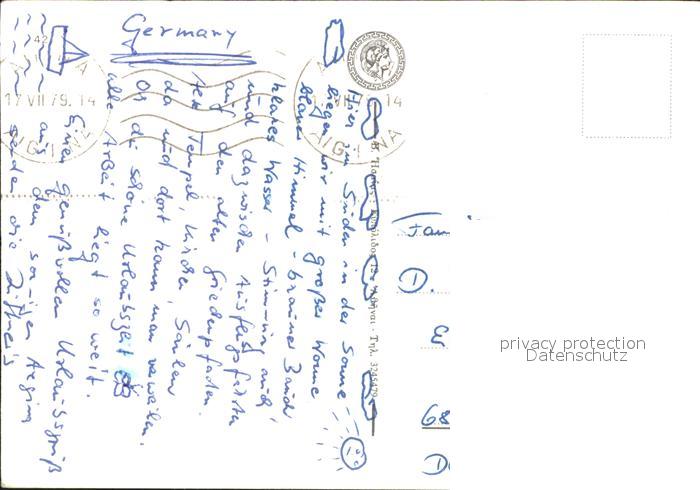 Germany
17 VII 79. 14
AIGINA
17 VII 79. 14
AIGINA
Hier im Süden in der Sonne
liegen wir mit großer Wonne
blauer Himmel - brauner Bauch
klares Wasser - Stimmung auch,
und dazwischen Ausflugsfahrten
auf den alten Griechenpfaden.
Tempel, Kirchen, Säulen
da und dort kann man verweilen.
Oh du schöne Urlaubszeit
alle Arbeit liegt so weit.
Einen genußvollen Urlaubsgruß
aus dem sonnigen Aegina
senden die
Ἀθῆναι - Τηλ. 3245479
Fam
D.
68
D
privacy protection
Datenschutz